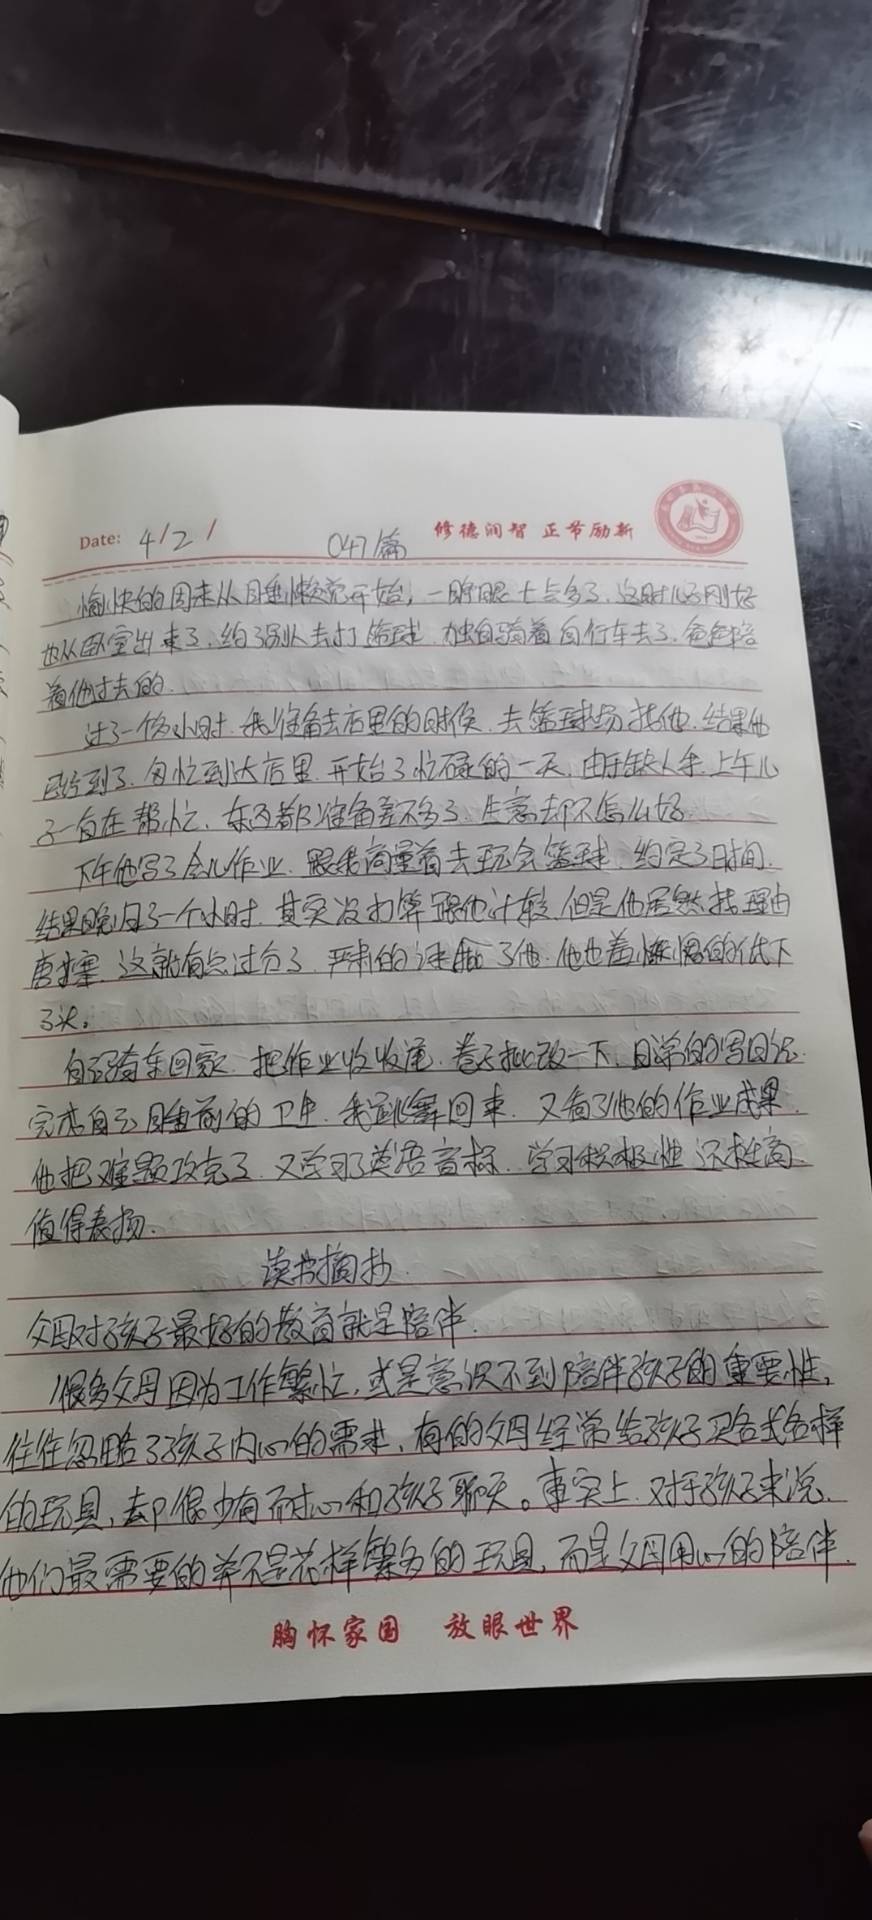 修德润智 正节励新
Date: 4/21 047篇
愉快的周末从睡懒觉开始,一睁眼七点多了,这时儿子刚好
也从卧室出来了,约了别人去打篮球,独自骑着自行车去了,爸爸陪
着他过去的.
过了一个多小时,我准备去店里的时候,去篮球场找他,结果他
已经到了,匆忙到达店里,开始了忙碌的一天,由于缺人手,上午儿
子一直在帮忙,东西都准备差不多了,生意却不怎么好.
下午他写了会儿作业,跟我商量着去玩会篮球,约定了时间,
结果晚回了一个小时,其实没打算跟他计较,但是他居然找理由
唐塞,这就有点过分了,严肃的批了他,他也羞惭愧的低下
了头。
自己骑车回家,把作业收收尾,卷子批改一下,日常的写日记.
完成自己睡前的卫生,我跳舞回来,又看了他的作业成果,
他把难题攻克了,又学习了英语音标,学习积极性还挺高,
值得表扬.
读书摘抄
父母对孩子最好的教育就是陪伴.
很多父母因为工作繁忙,或是意识不到陪伴孩子的重要性,
往往忽略了孩子内心的需求,有的父母经常给孩子买各式各样
的玩具,却很少有耐心和孩子聊天。事实上,对于孩子来说,
他们最需要的并不是花样繁多的玩具,而是父母用心的陪伴.
胸怀家国 放眼世界